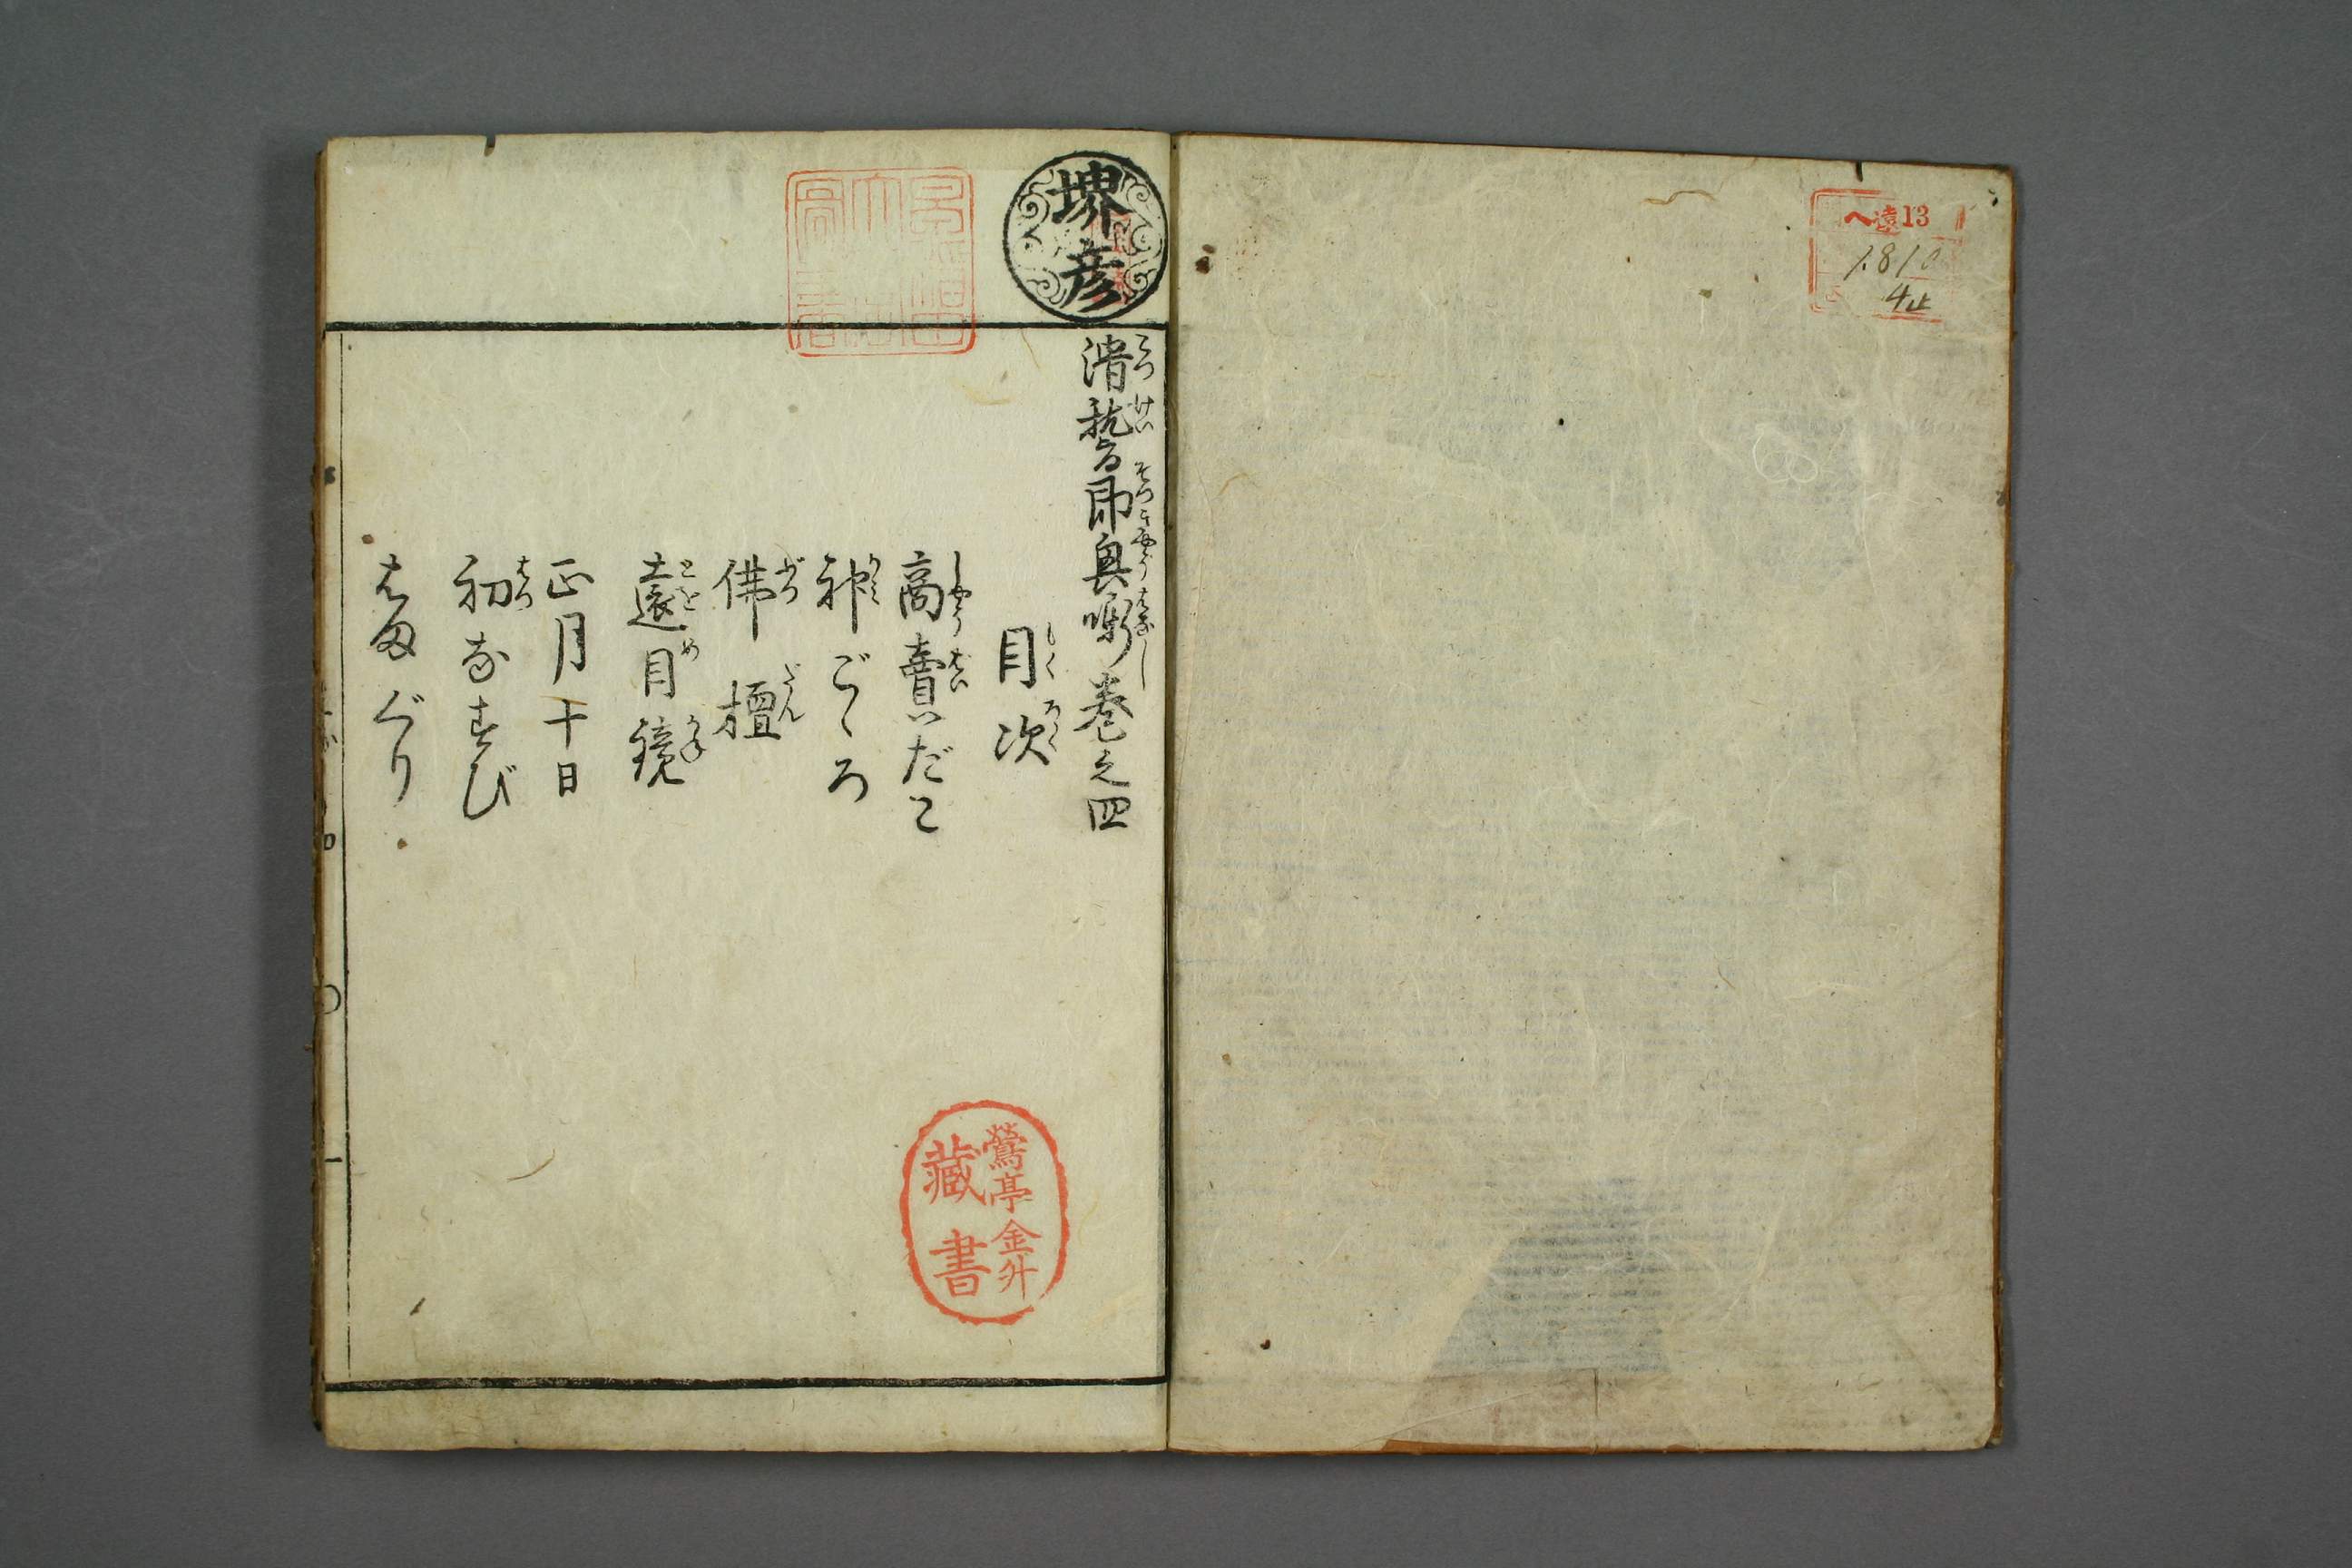 ヘ遠13
1810
4止
堺彦
滑稽即興噺巻之四
目次
商賣いだこ
神ごゝろ
佛檀
遠目鏡
正月十日
初なすび
はまぐり
鶯亭金升
藏書